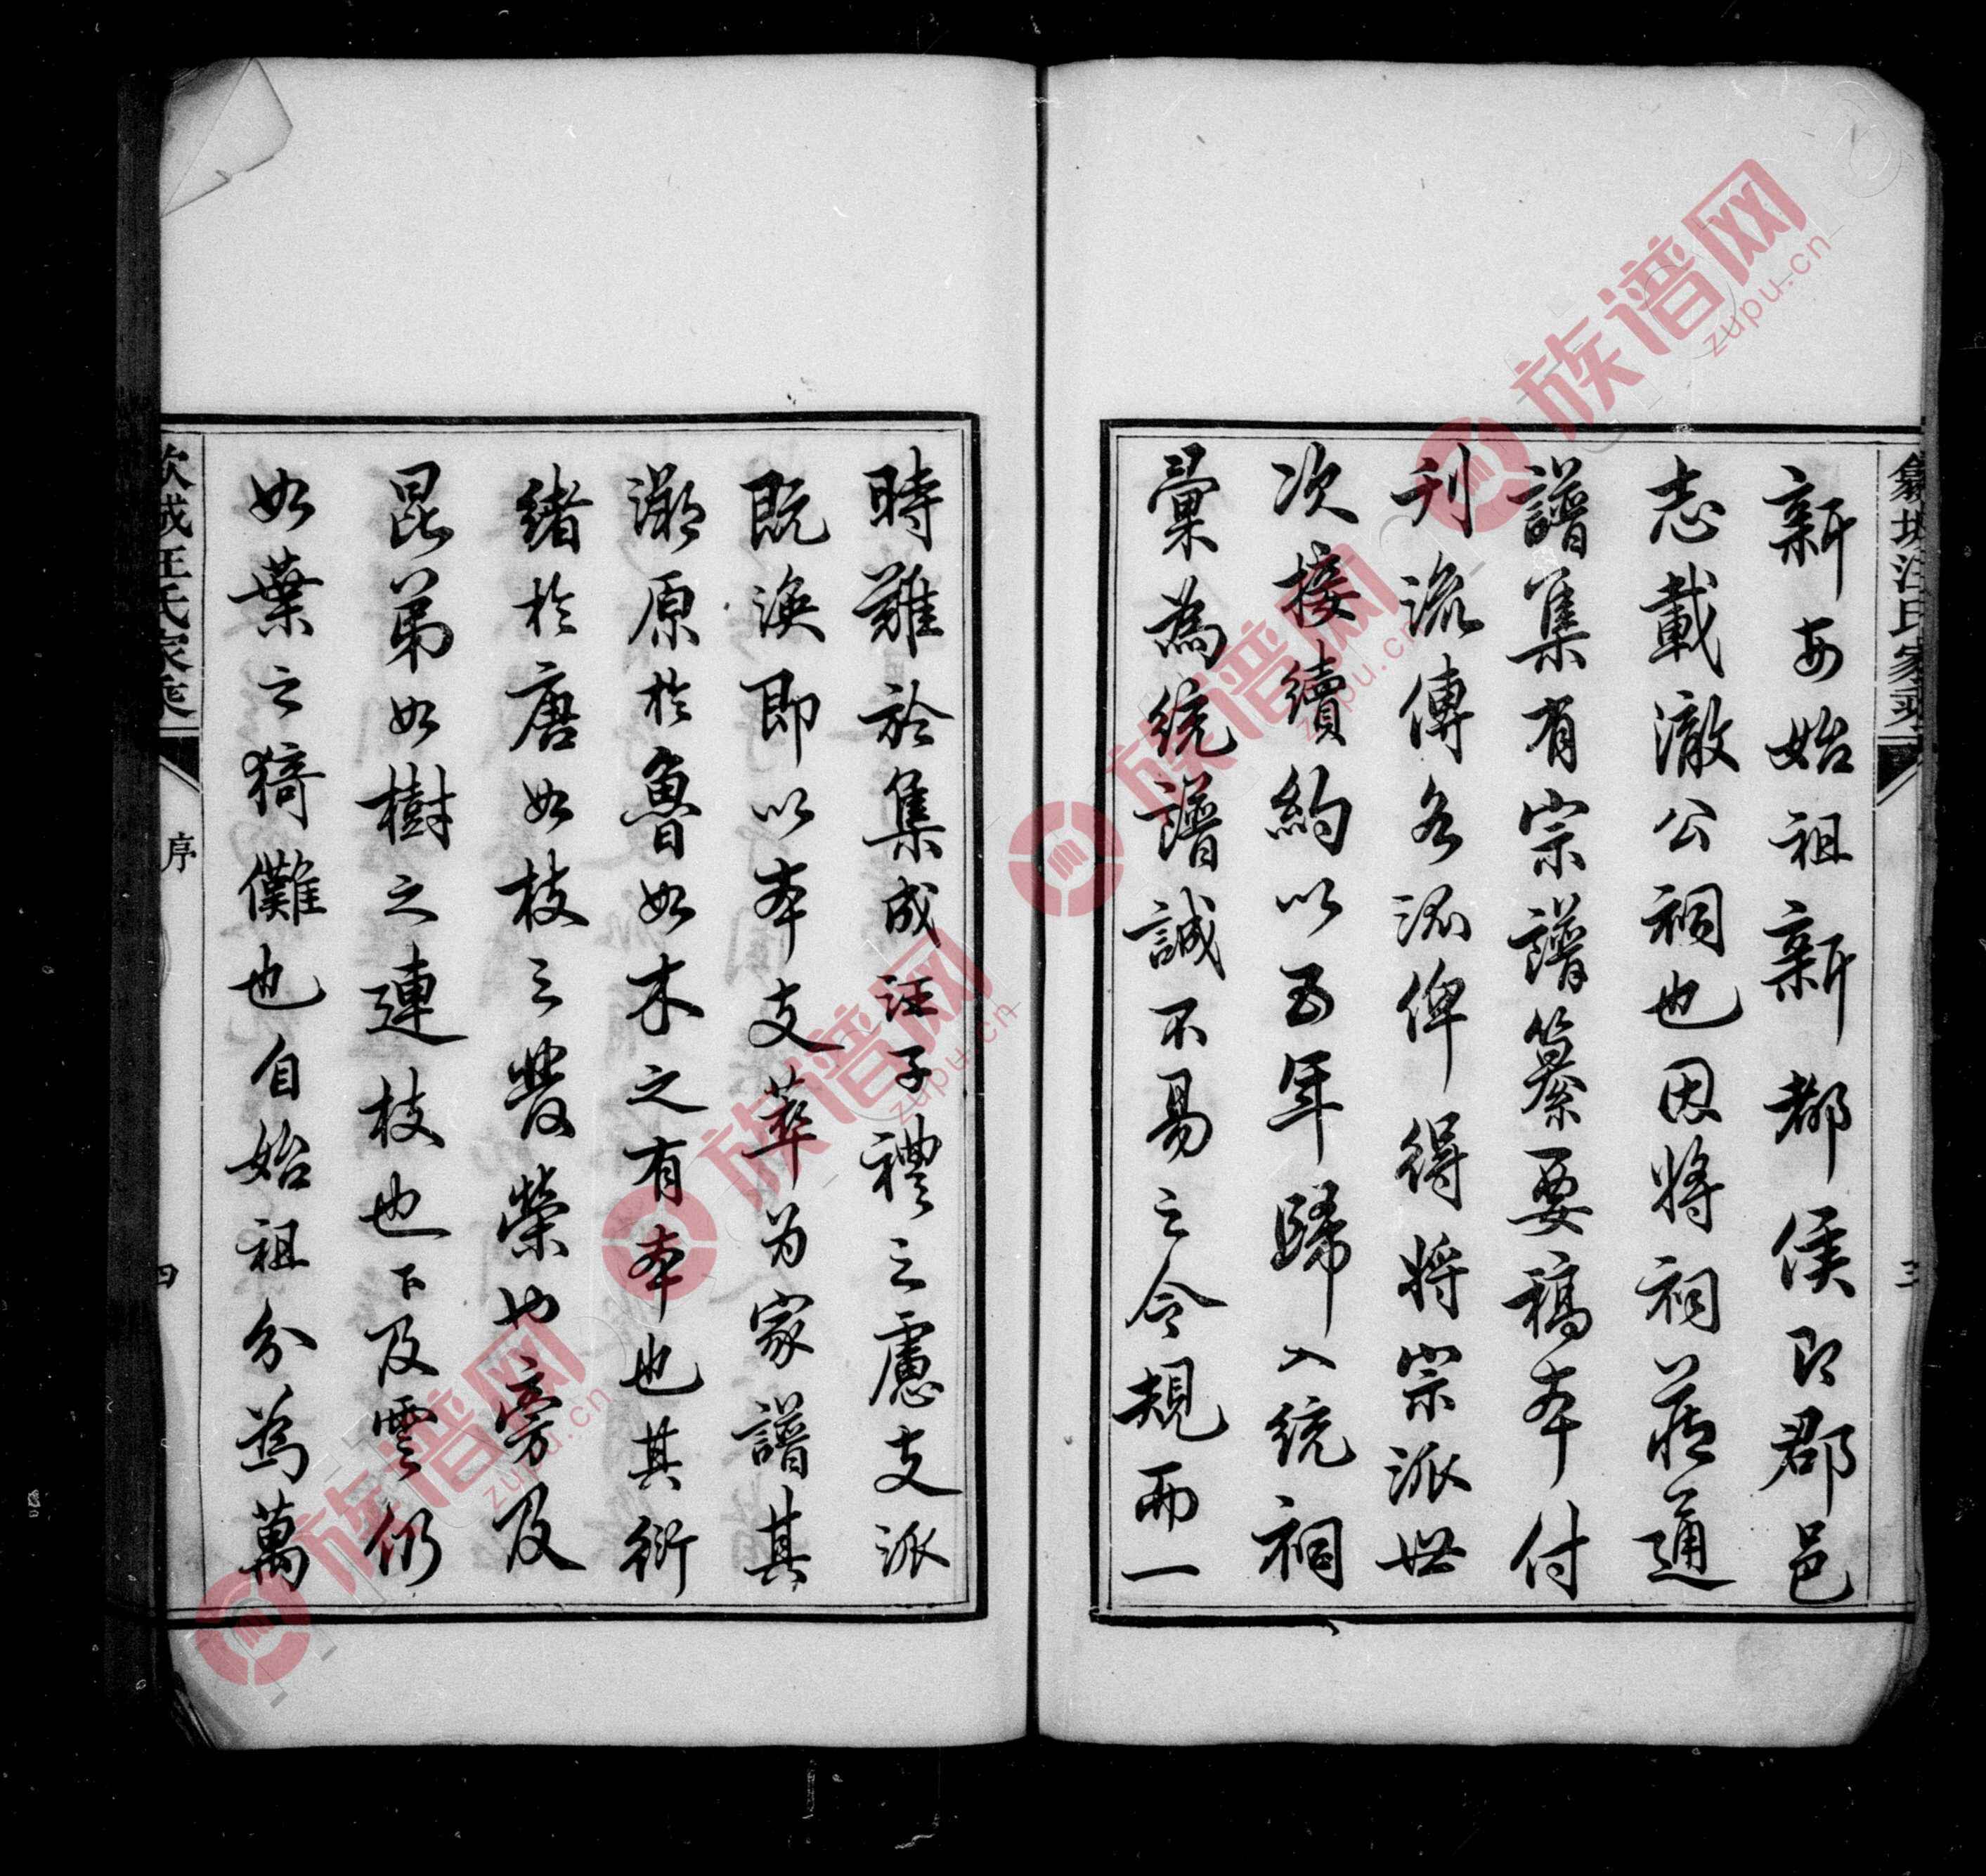 汪氏家乘
三
新安始祖新都侯即郡邑
志載澈公祠也因將祠藏通
譜集有宗譜纂要稿本付
刊流傳各派俾得將宗派世
次接續約以五年歸入統祠
彙為統譜誠不易之令規而一
時難於集成汪子禮之慮支派
既渙即以本支萃为家譜其
溯原於魯如木之有本也其衍
緒於唐如枝之發榮也旁及
昆弟如樹之連枝也下及雲仍
如葉之猗儺也自始祖分為萬
城汪氏家乘
序
四
族谱网
zupu.cn
族谱网
zupu.cn
族谱网
zupu.cn
族谱网
zupu.cn